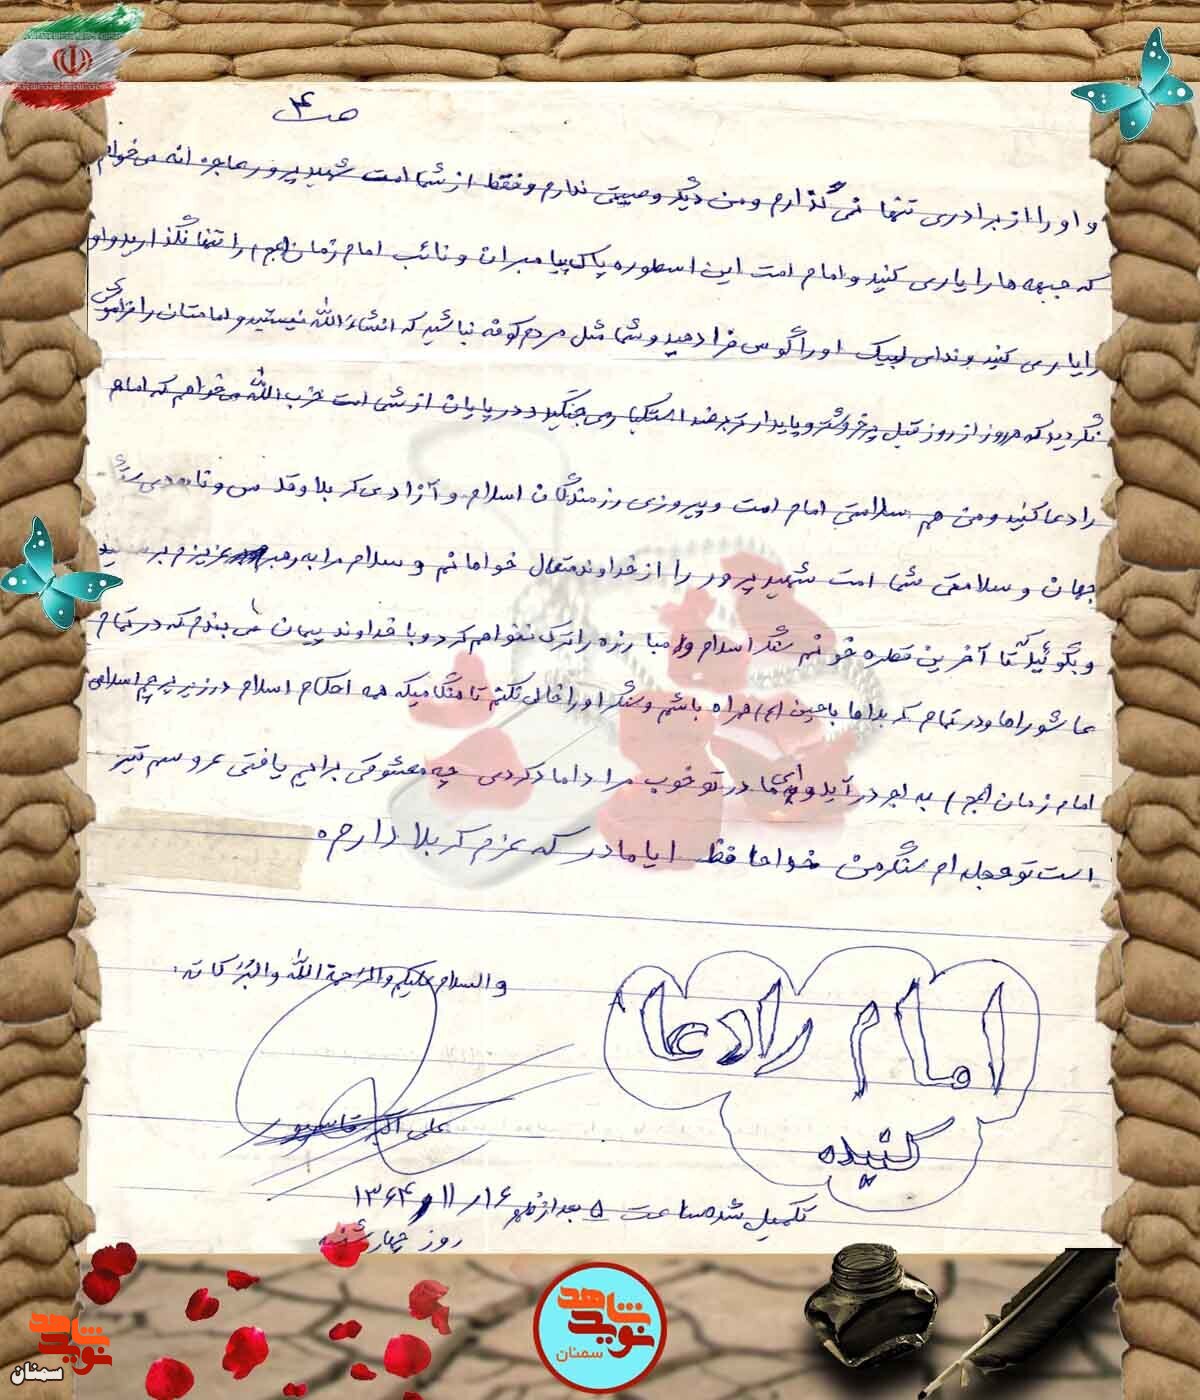 صت ۴
و او را از برادری تنها نمی گذارم و من دیگر وصیتی ندارم و فقط از شما امت شهید پرور عاجزانه می خواهم
که جبهه ها را یاری کنید و امام امت این اسطوره پاک پیامبران و نائب امام زمان (عج) را تنها نگذارید و او
را یاری کنید و ندای لبیک او را گوش فرا دهید و شما مثل مردم کوفه نباشید که انشاءالله نیستید و امامتان را فراموش
نگردید که هر روز از روز قبل پر خروشتر و پایدار تر بر ضد استکبار می جنگید و در پایان از شما امت حزب الله می خواهم که امام
را دعا کنید و من هم سلامتی امام امت و پیروزی رزمندگان اسلام و آزادی کربلا و قدس و
جهان و سلامتی شما امت شهید پرور را از خداوند متعال خواهانم و سلام مرا به رهبر عزیزم
و بگوئید که تا آخرین قطره خونم سنگر اسلام و مبارزه را ترک نخواهم کرد و با خداوند پیمان می بندم که در تمام
عاشوراها و در تمام کربلاها با حسین (ع) همراه باشم و سنگر او را خالی نکنم تا هنگامیکه همه احکام اسلام در زیر پرچم اسلامی
امام زمان (عج) به اجرا در آید و ای مادر تو خوب مرا داماد کردی چه معشوقی برایم یافتی عروسم تیر
است تو حجله ام سنگر من خداحافظ ایا مادر که عزم کربلا دارم
والسلام علیکم والرحمة الله والبرکاته
امام را دعا
کنید
علی اکبر قاسمپور
تکمیل شده ساعت ۵ بعد از ظهر ۱۶ر۱۱ر۱۳۶۴
روز چهارشنبه
شاهد
نوید
سمنان
شاهد
نوید
سمنان